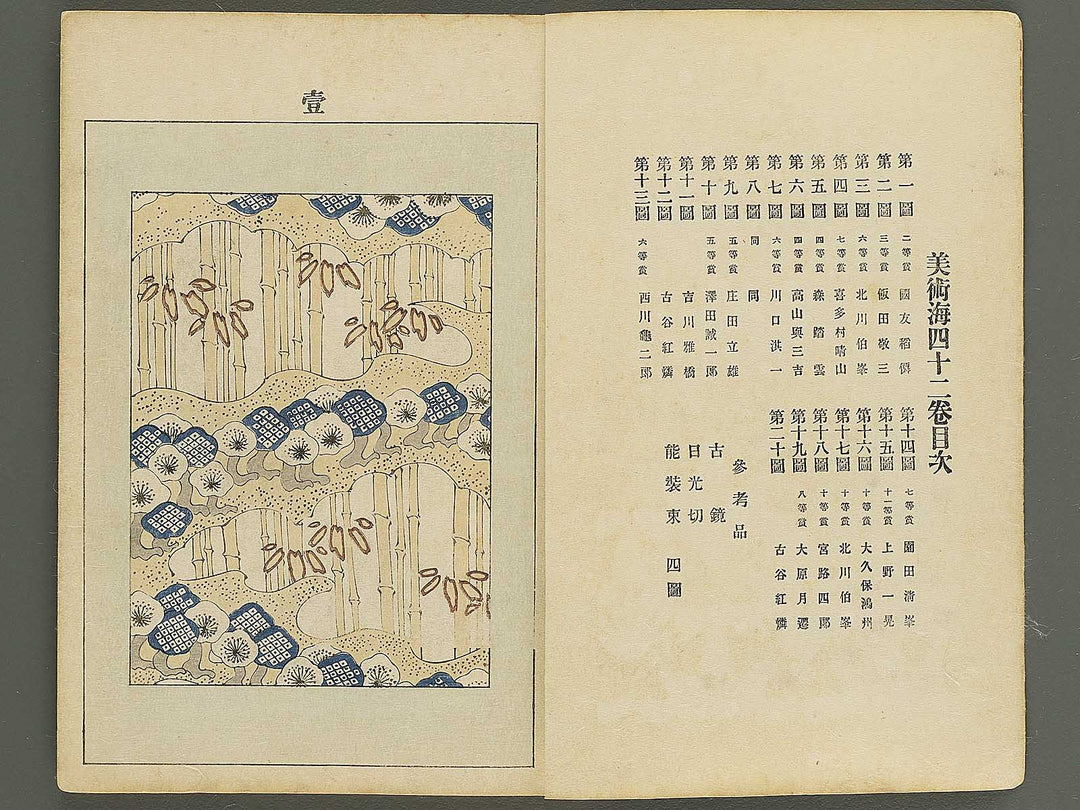 美術海四十二卷目次
第一圖 二等賞 國友稻
第二圖 三等賞 飯田敬三
第三圖 六等賞 北川伯峯
第四圖 七等賞 喜多村晴山
第五圖 四等賞 森踏雲
第六圖 四等賞 高山與三吉
第七圖 六等賞 川口淇一
第八圖 同 同
第九圖 五等賞 庄田立雄
第十圖 五等賞 澤田誠一郎
第十一圖 吉川雅橋
第十二圖 古谷紅麟
第十三圖 六等賞 西川龜二郎
第十四圖 七等賞 園田清峯
第十五圖 十一等賞 上野一晃
第十六圖 十等賞 大久保鴻州
第十七圖 十等賞 北川伯峯
第十八圖 十等賞 宮路四郎
第十九圖 八等賞 大原月
第二十圖 古谷紅麟
參考品
古鏡
日光切
能裝束 四圖
壹